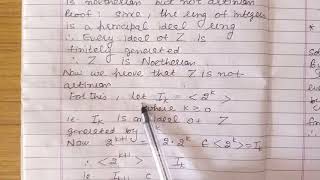 is noetherian but not artinian
Proof: since, the ring of integer
is a principal ideal ring
∴ Every ideal of Z is
finitely generated
∴ Z is Noetherian.
Now we prove that Z is not
artinian
For this, let I_k = <2^k>
where k ≥ 0
i.e. I_k is an ideal of Z
generated by 2^k
Now 2^{k+1} = 2·2^k ∈ <2^k> = I_k
∴ <2^{k+1}> ⊂ I_k
is I_{k+1} ⊂